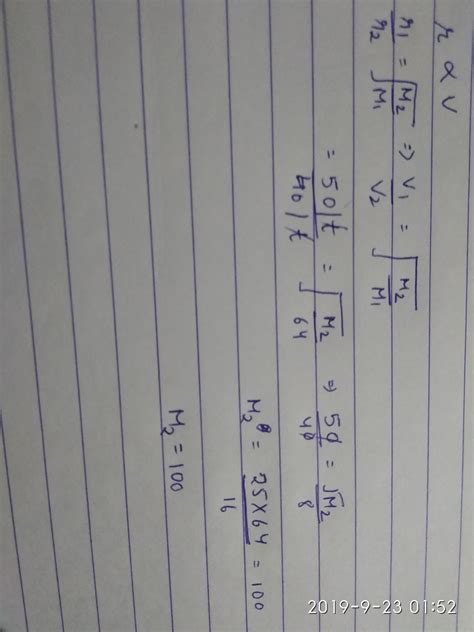 r ∝ V
r₁/r₂ = √(M₂/M₁) ⇒ V₁/V₂ = √(M₂/M₁)
= (50/t)/(40/t) = √(M₂/64) ⇒ 50/40 = √M₂/8
M₂ = (25×64)/16 = 100
M₂ = 100
2019-9-23 01:52